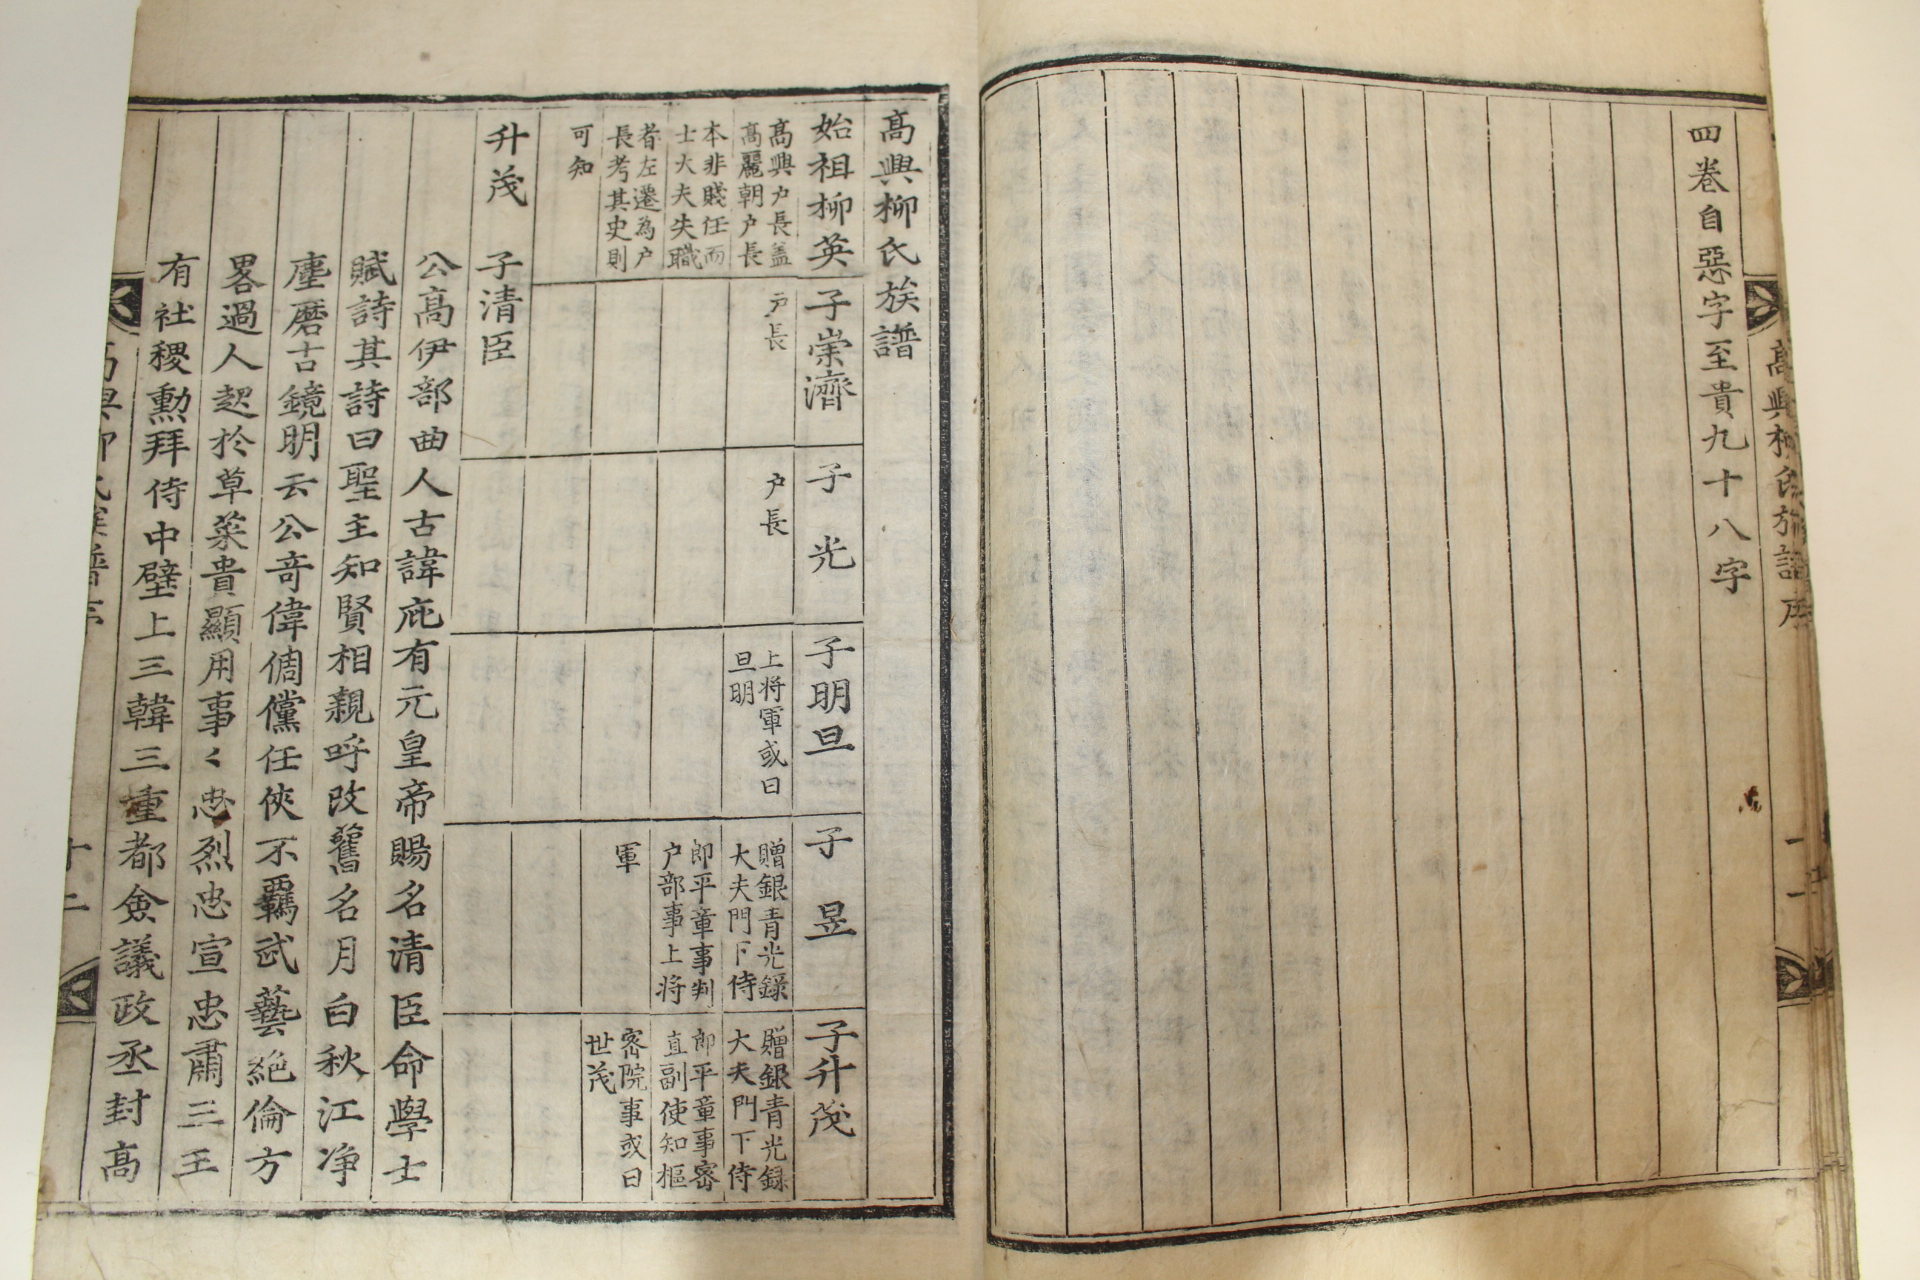 四卷自惡字至貴九十八字
高興柳氏族譜序
十一
高興柳氏族譜
始祖柳英
高興户長盖
高麗朝户長
本非賤任而
士大夫失職
者左遷為户
長考其史則
可知
子崇濟
户長
子光
户長
子明旦
上将軍或曰
旦明
子昱
贈銀青光録
大夫門下侍
郎平章事判
户部事上将
軍
子升茂
贈銀青光録
大夫門下侍
郎平章事密
直副使知樞
密院事或曰
世茂
升茂 子清臣
公高伊部曲人古諱庇有元皇帝賜名清臣命學士
賦詩其詩曰聖主知賢相親呼改舊名月白秋江净
塵磨古鏡明云公奇偉倜儻任俠不覊武藝絶倫方
畧過人起於草菜貴顯用事〻忠烈忠宣忠肅三王
有社稷勳拜侍中壁上三韓三重都僉議政丞封高
高興柳氏族譜序
十二